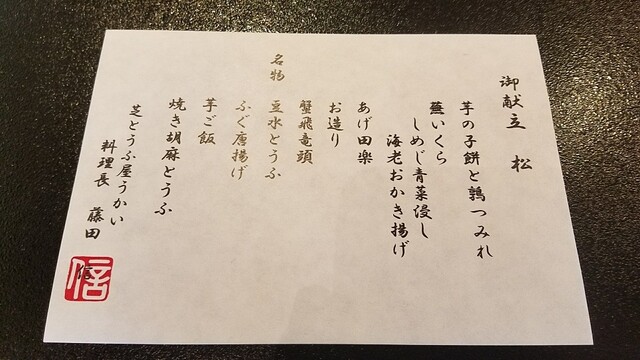 御献立 松
芋の子餅と鶉つみれ
蕪いくら
しめじ青菜浸し
海老おかき揚げ
あげ田楽
お造り
蟹飛竜頭
名物 豆水とうふ
ふぐ唐揚げ
芋ご飯
焼き胡麻とうふ
芝とうふ屋うかい
料理長 藤田 信
信